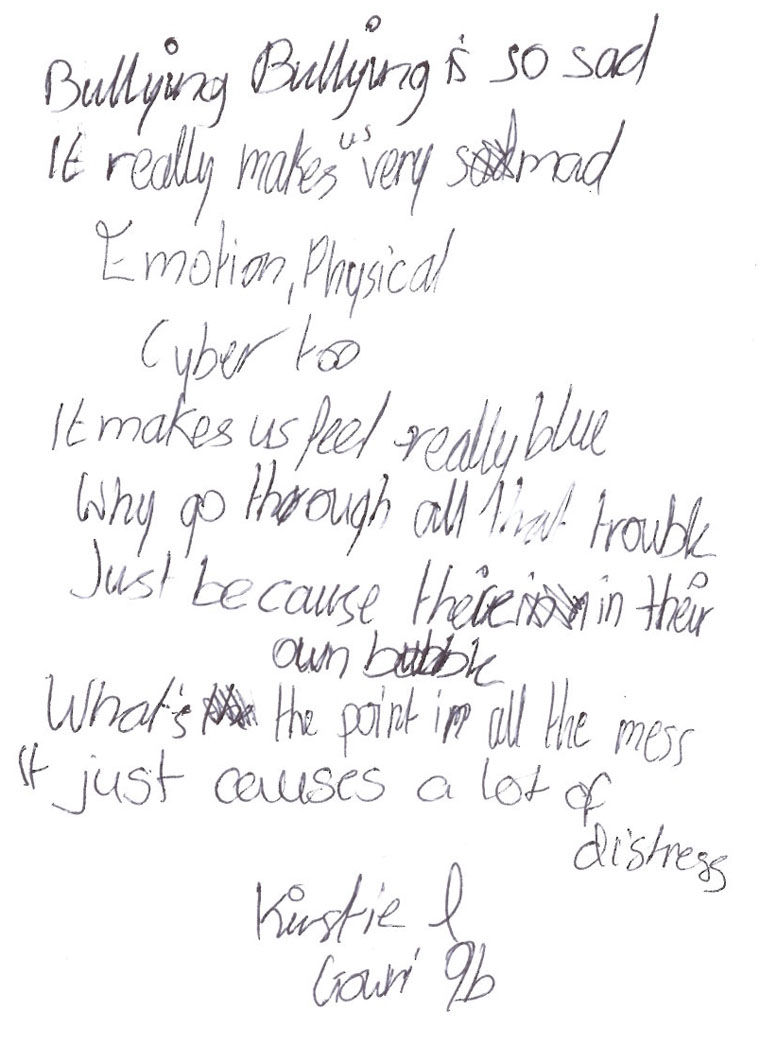 Bullying Bullying is so sad
It really makes "us" very mad
Emotion, Physical
Cyber too
It makes us feel really blue
Why go through all that trouble
Just because there in their
own bubble
What's the point in all the mess
It just causes a lot of
distress
Kirstie l
9b